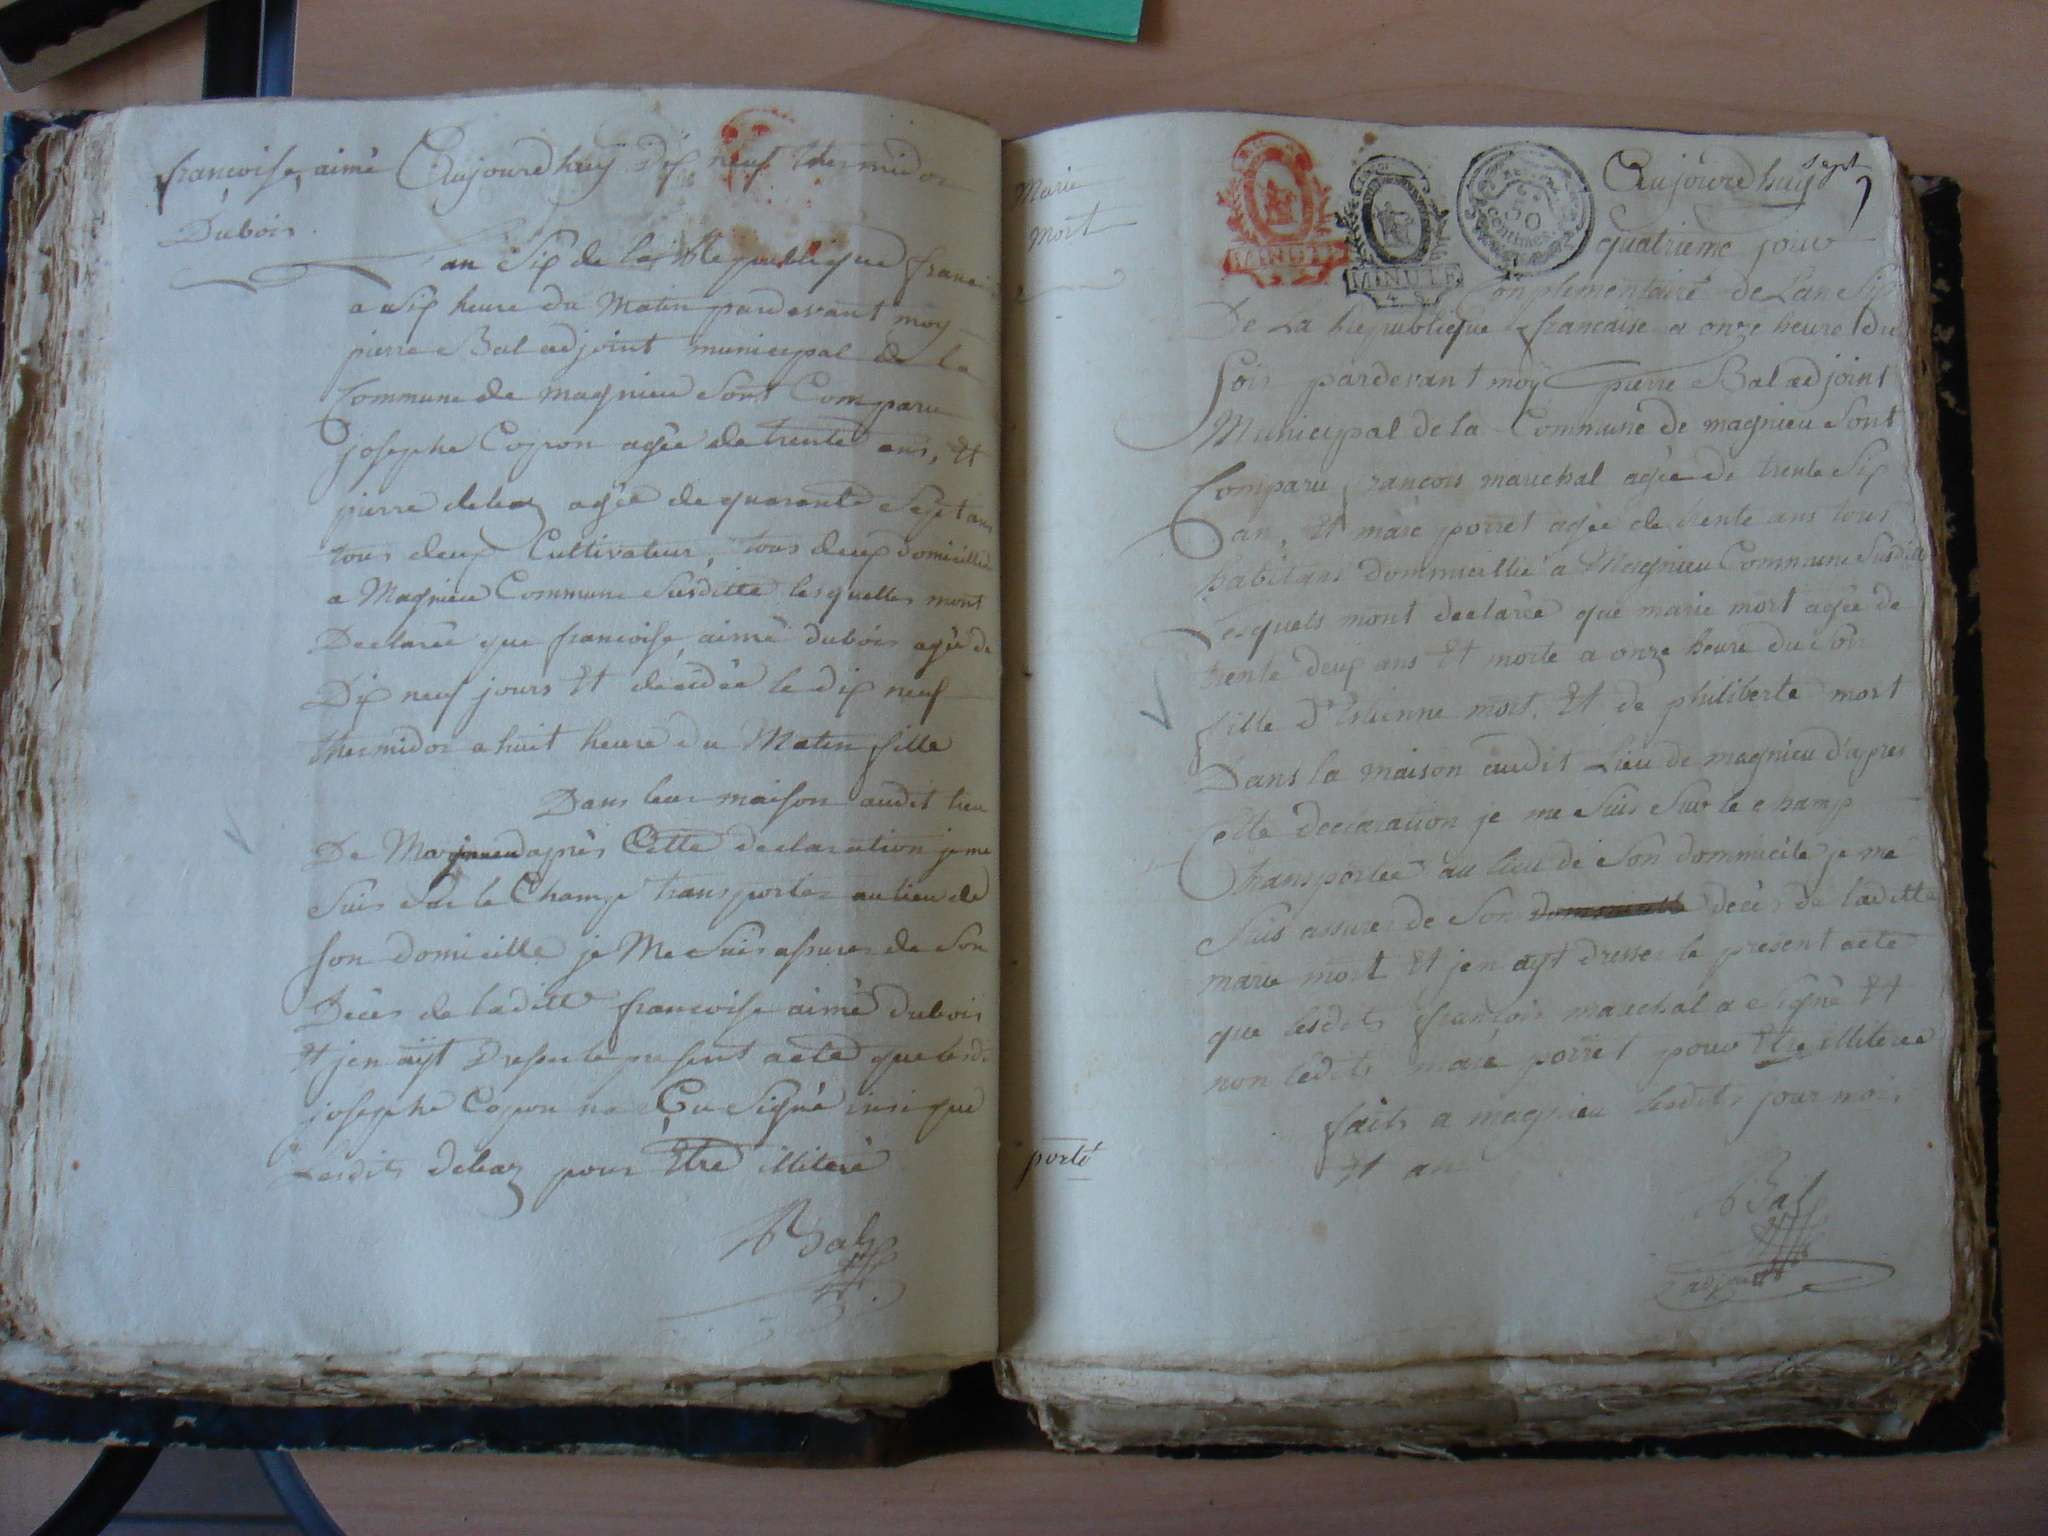 francoise, aimé
Dubois.
Aujourdhuy dix neuf thermidor
an Six de la Republique franc
a dix heure du Matin pardevant moy
pierre Bal adjoint municipal de la
Commune de magnieu Sont Comparu
josephe Copon agée de trente ans, Et
pierre delaz agée de quarante Sept ans
tous deux Cultivateur, tous deux domicillié
a Magnieu Commune Susditte lesquelles mont
Declarée que francoise, aimé dubois agée de
Dix neuf jours Et décédée le dix neuf
thermidor a huit heure du Matin fille
Dans leur maison audit lieu
De Magnieu d'après Cette declaration je me
Suis Sur le Champ transporter au lieu de
Son domicille je Me Suis assurer de Son
Décès de laditte francoise aimé dubois
Et jen ayt Dresser le present acte que lesd.
josephe Copon na Su Signé insi que
Lesdits delaz pour Etre illiteré
PBal
Marie
mort
porté
MINUTE
MINUTE
50
Centimes
sept
Aujourdhuy
quatrieme jour
Complementaire de Lan Six
De La Republique francaise a onze heure du
Soir pardevant moÿ pierre Bal adjoint
Municipal de la Commune de magnieu Sont
Comparu francois marechal agée de trente Six
an, Et marc porret agée de trente ans tous
habitans dommicillié a Magnieu Commune Susditte
Lesquels mont declarée que marie mort agée de
trente deux ans Et morte a onze heure du Soir
fille d'Estienne mort, Et de philiberte mort
Dans la maison audit Lieu de magnieu d'apres
Cette declaration je me Suis Sur le champ
transportée au lieu de Son dommicile je me
Suis assurer de Son decès de laditte
marie mort Et jen ayt dresser le present acte
que lesdits françois marechal a Signé Et
non lédits marc porret pour Etre illiteree
faits a magnieu lesdits jour mois
Et an
PBal
adjoint